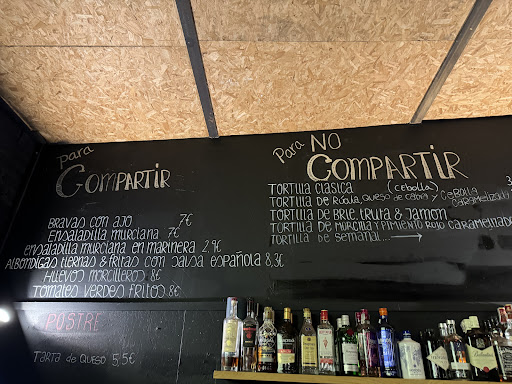 para
COMPARTIR
BRAVAS CON AJO 7€
ENSALADILLA MURCIANA 7€
ENSALADILLA MURCIANA EN MARINERA 2,9€
ALBÓNDIGAS TIERNAS & FRITAS CON SALSA ESPAÑOLA 8,3€
HUEVOS MORCILLEROS 8€
TOMATES VERDES FRITOS 8€
POSTRE
TARTA de QUESO 5,5€
Para NO
COMPARTIR
TORTILLA CLÁSICA (CEBOLLA)
TORTILLA DE RÚCULA, QUESO DE CABRA y CEBOLLA CARAMELIZADA
TORTILLA DE BRIE, TRUFA & JAMON
TORTILLA DE MORCILLA Y PIMIENTO ROJO CARAMELIZADO
TORTILLA DE SEMANA....